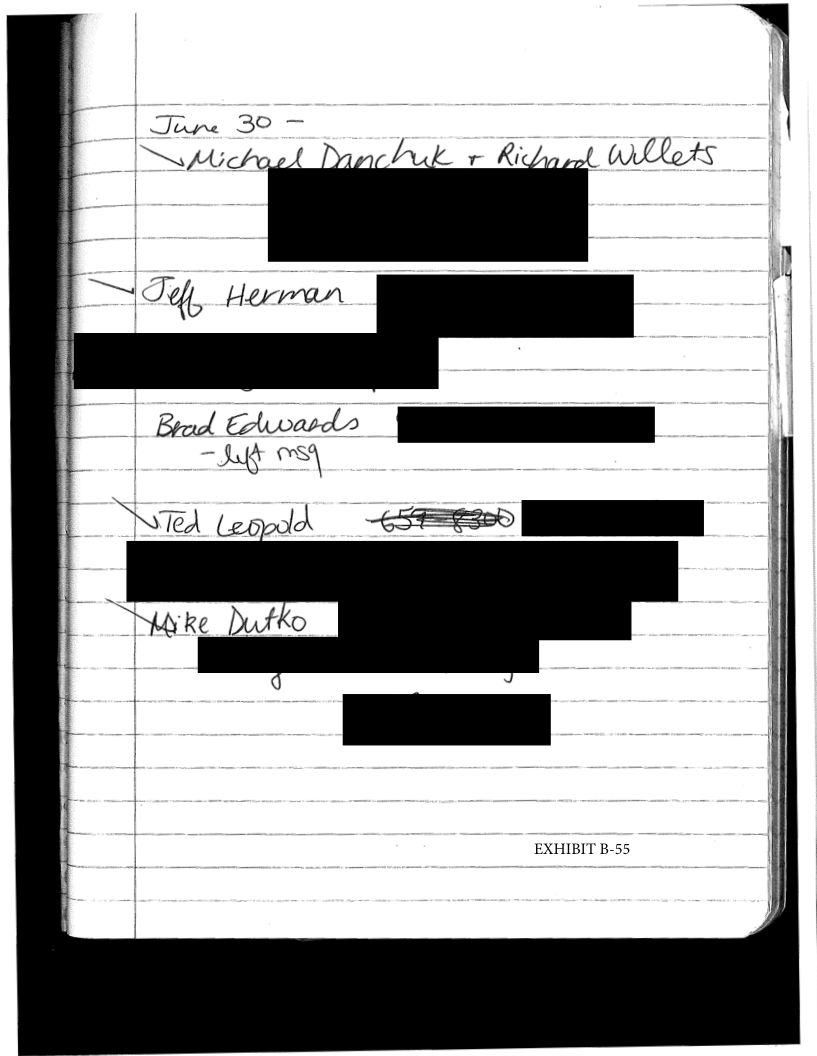 June 30 -
Michael Danchuk + Richard Willets
Jeff Herman
Brad Edwards
- left msg
Ted Leopold 659 8300
Mike Dutko
EXHIBIT B-55